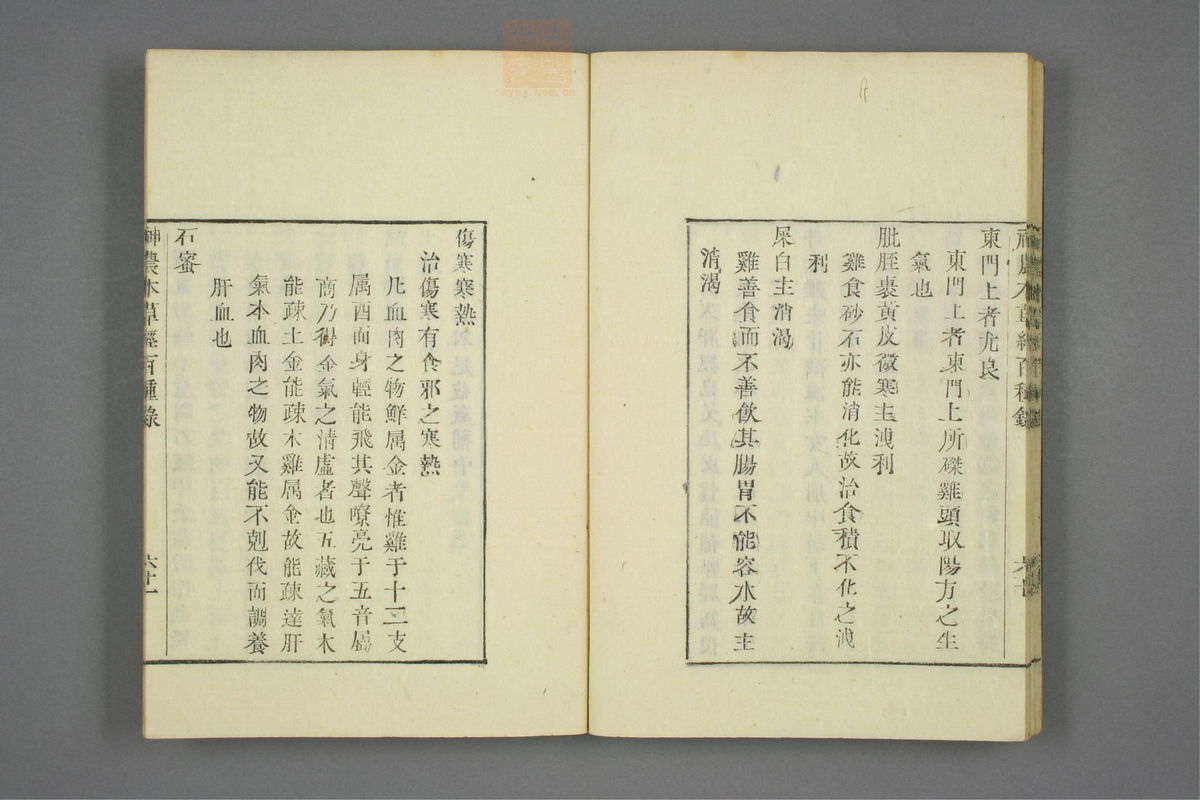 神農本草經百種錄
東門上者尤良
東門上者東門上所磔雞頭取陽方之生
氣也
肶胵裹黃皮微寒主洩利
雞食砂石亦能消化故治食積不化之洩
利
屎白主消渴
雞善食而不善飲其腸胃不能容水故主
消渴
傷寒寒熱
治傷寒有食邪之寒熱
凡血肉之物鮮属金者惟雞于十二支
属酉而身輕能飛其聲嘹亮于五音屬
商乃得金氣之清虛者也五藏之氣木
能疎土金能疎木雞属金故能疎達肝
氣本血肉之物故又能不剋伐而調養
肝血也
石蜜
神農本草經百種錄